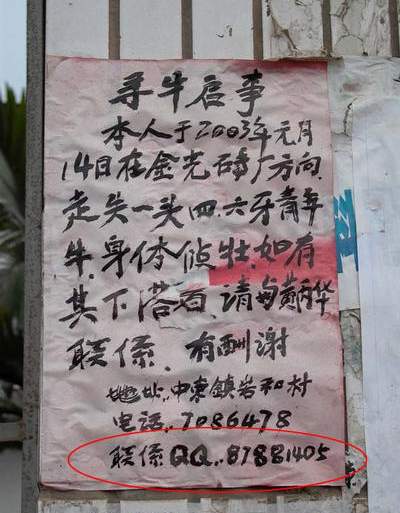 寻牛启事
本人于2003年元月
14日在金光砖厂方向
走失一头四.六牙青年
牛.身体侦壮.如有
其下落者.请与黄华
联係.有酬谢
地址..中東鎮岩和村
电话..7086478
联係QQ..87881405